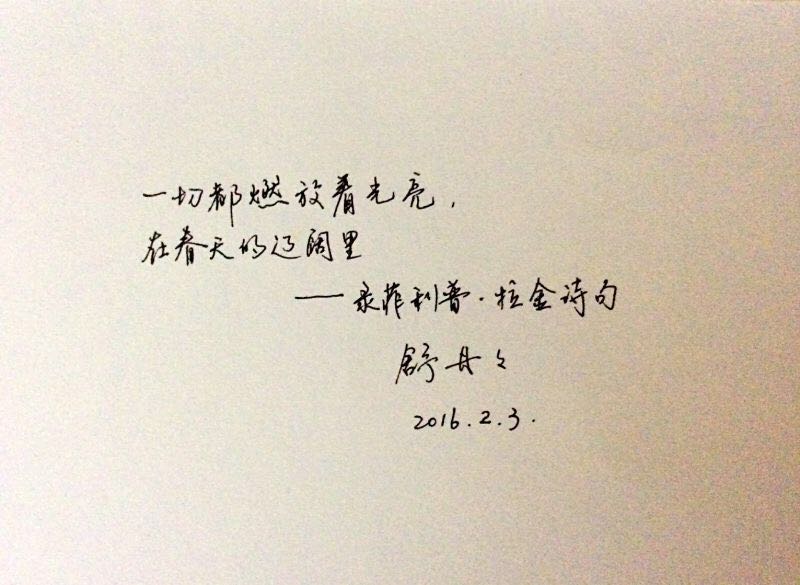 一切都燃放着光亮，
在春天的辽阔里
——录菲利普·拉金诗句
舒丹丹
2016.2.3.